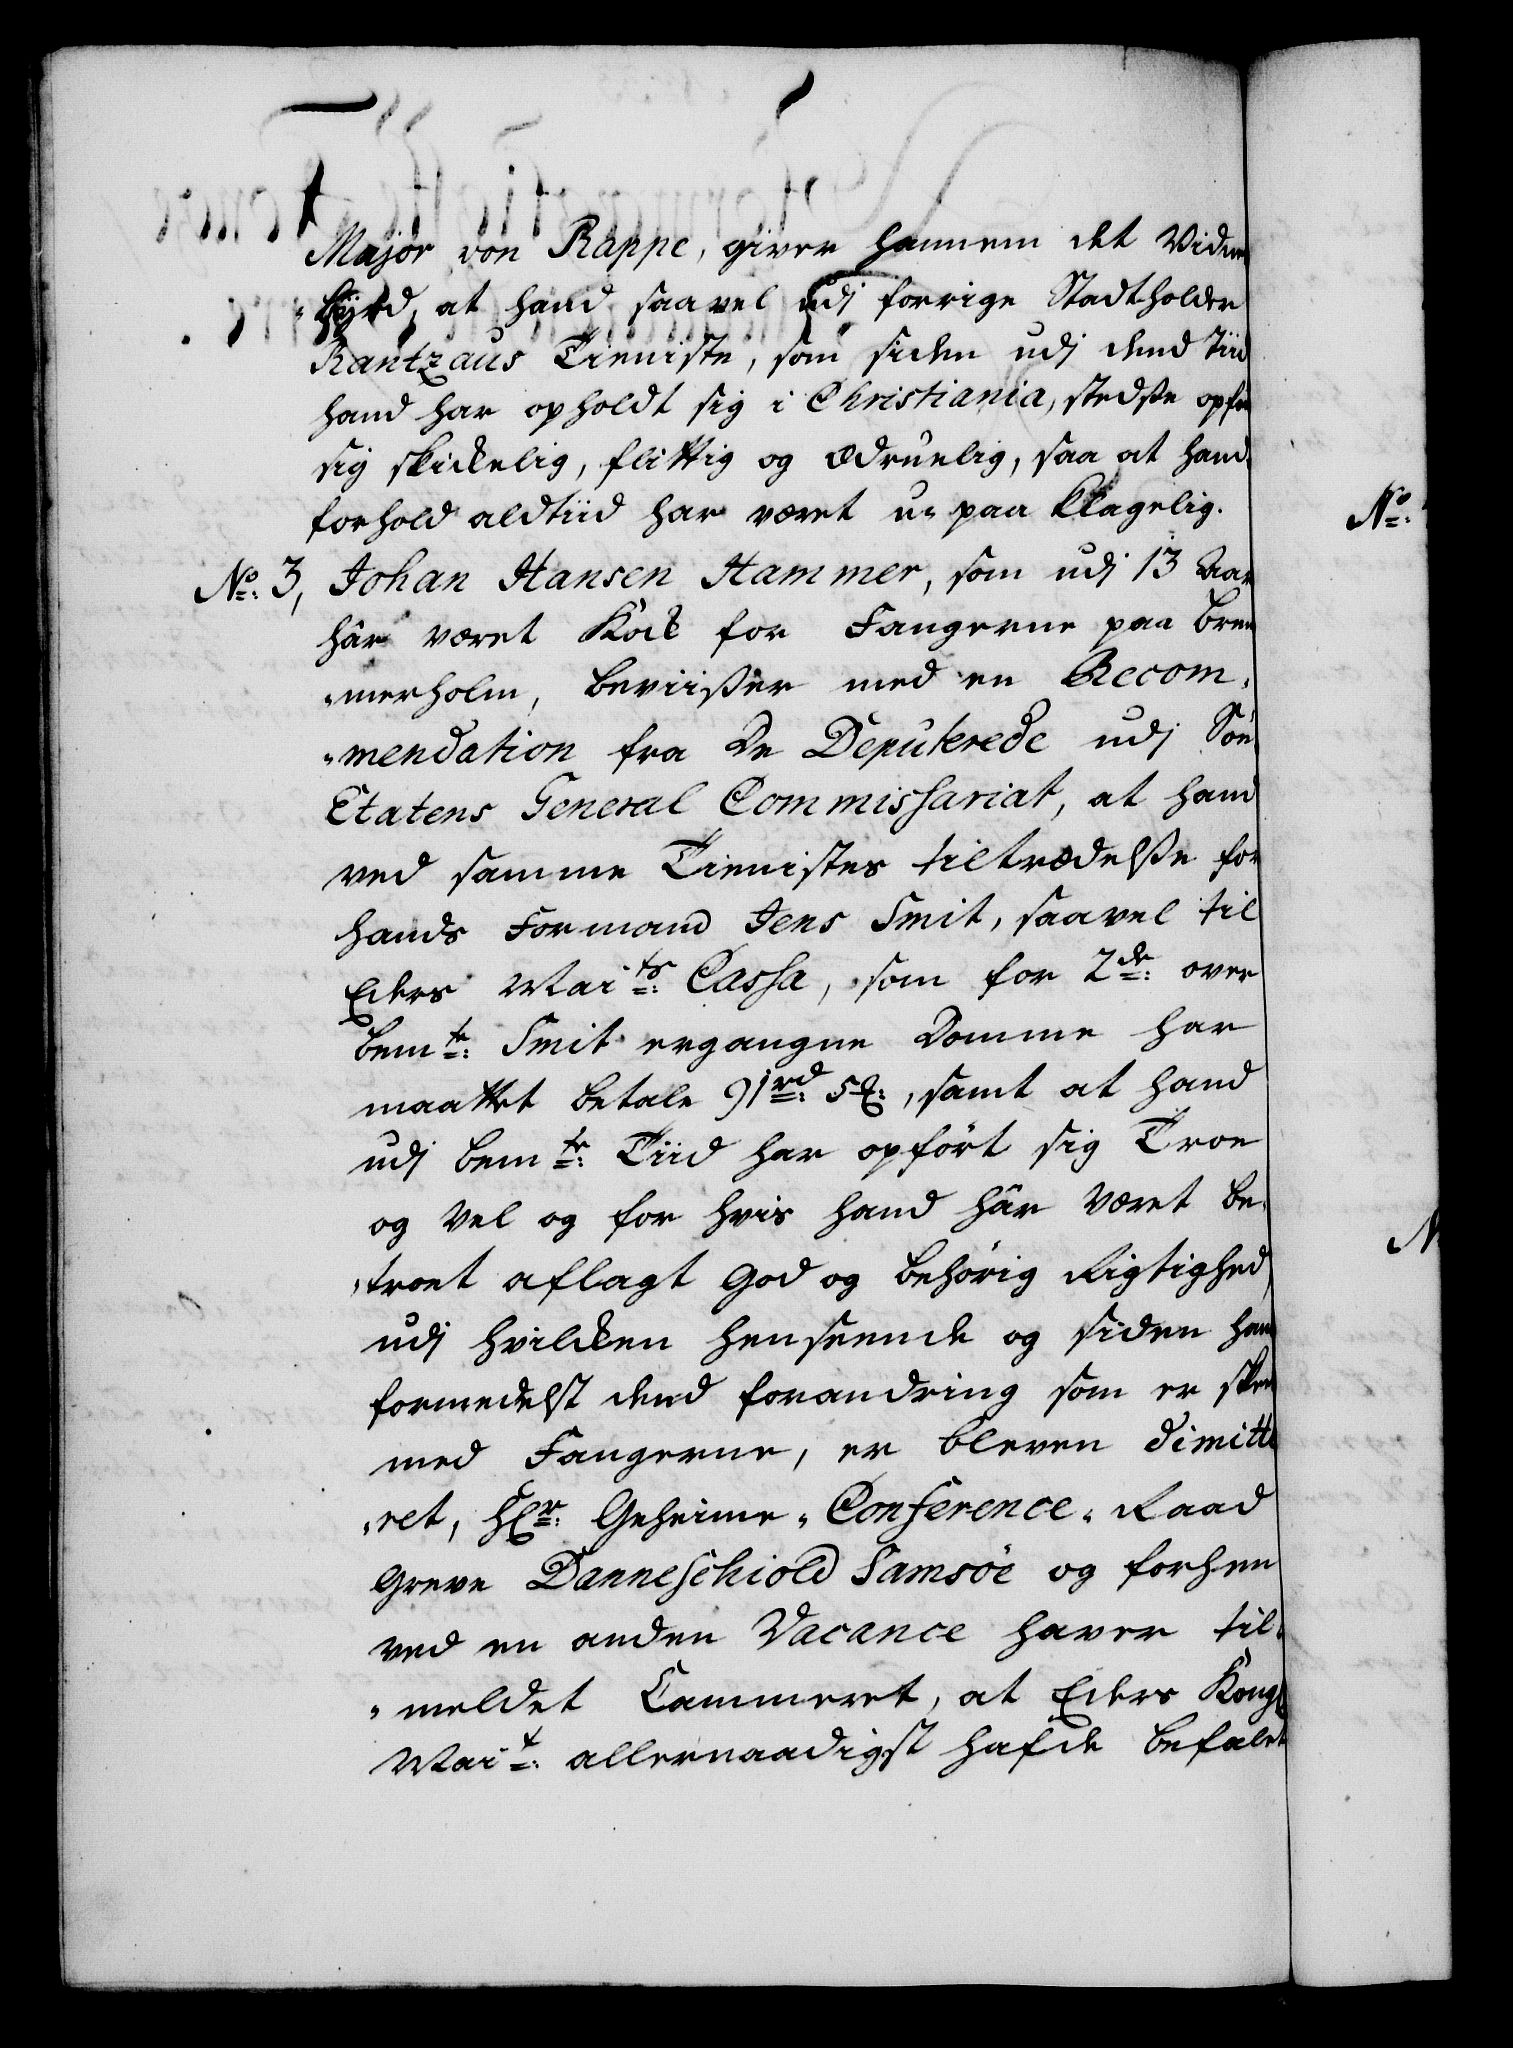 Major von Rappe, giver hannem det Vidnes
„byrd, at hand saavel udj forrige Stadtholder
Rantzaus Tieniste, som siden udj dend Tiid
hand har opholdt sig i Christiania, stedse opfø
sig skickelig, flittig og ædruelig, saa at hands
forhold altiid har været u„paa klagelig.
No: 3, Johan Hansen Hammer, som udj 13 Aar
har været Kock for Fangerne paa Brem
„merholm, beviißer med en Recom„
„mendation fra De Deputerede udj Søe
Etatens General Commissariat, at hand
ved samme Tienistes tiltrædelße for
hands Formand Jens Smit, saavel til
Eders Maits: Cassa, som for 2de: over
bemte: Smit ergangne Domme har
maattet betale 91rd: 5ß:, samt at hand
udj bemte: Tiid har opført sig Troe
og vel og for hvis hand har været be„
„troet aflagt god og behørig Rigtighed,
udj hvilcken henseende og siden hand
formedelst dend forandring som er skeed
med Fangerne, er bleven dimitte
„ret, Hr: Geheime„Conference„Raad
Greve Danneschiold Samsöe og forhen
ved en anden Vacance haver til„
„meldet Cammeret, at Eders Kongl
Mait: allernaadigst hafde befalet
No: